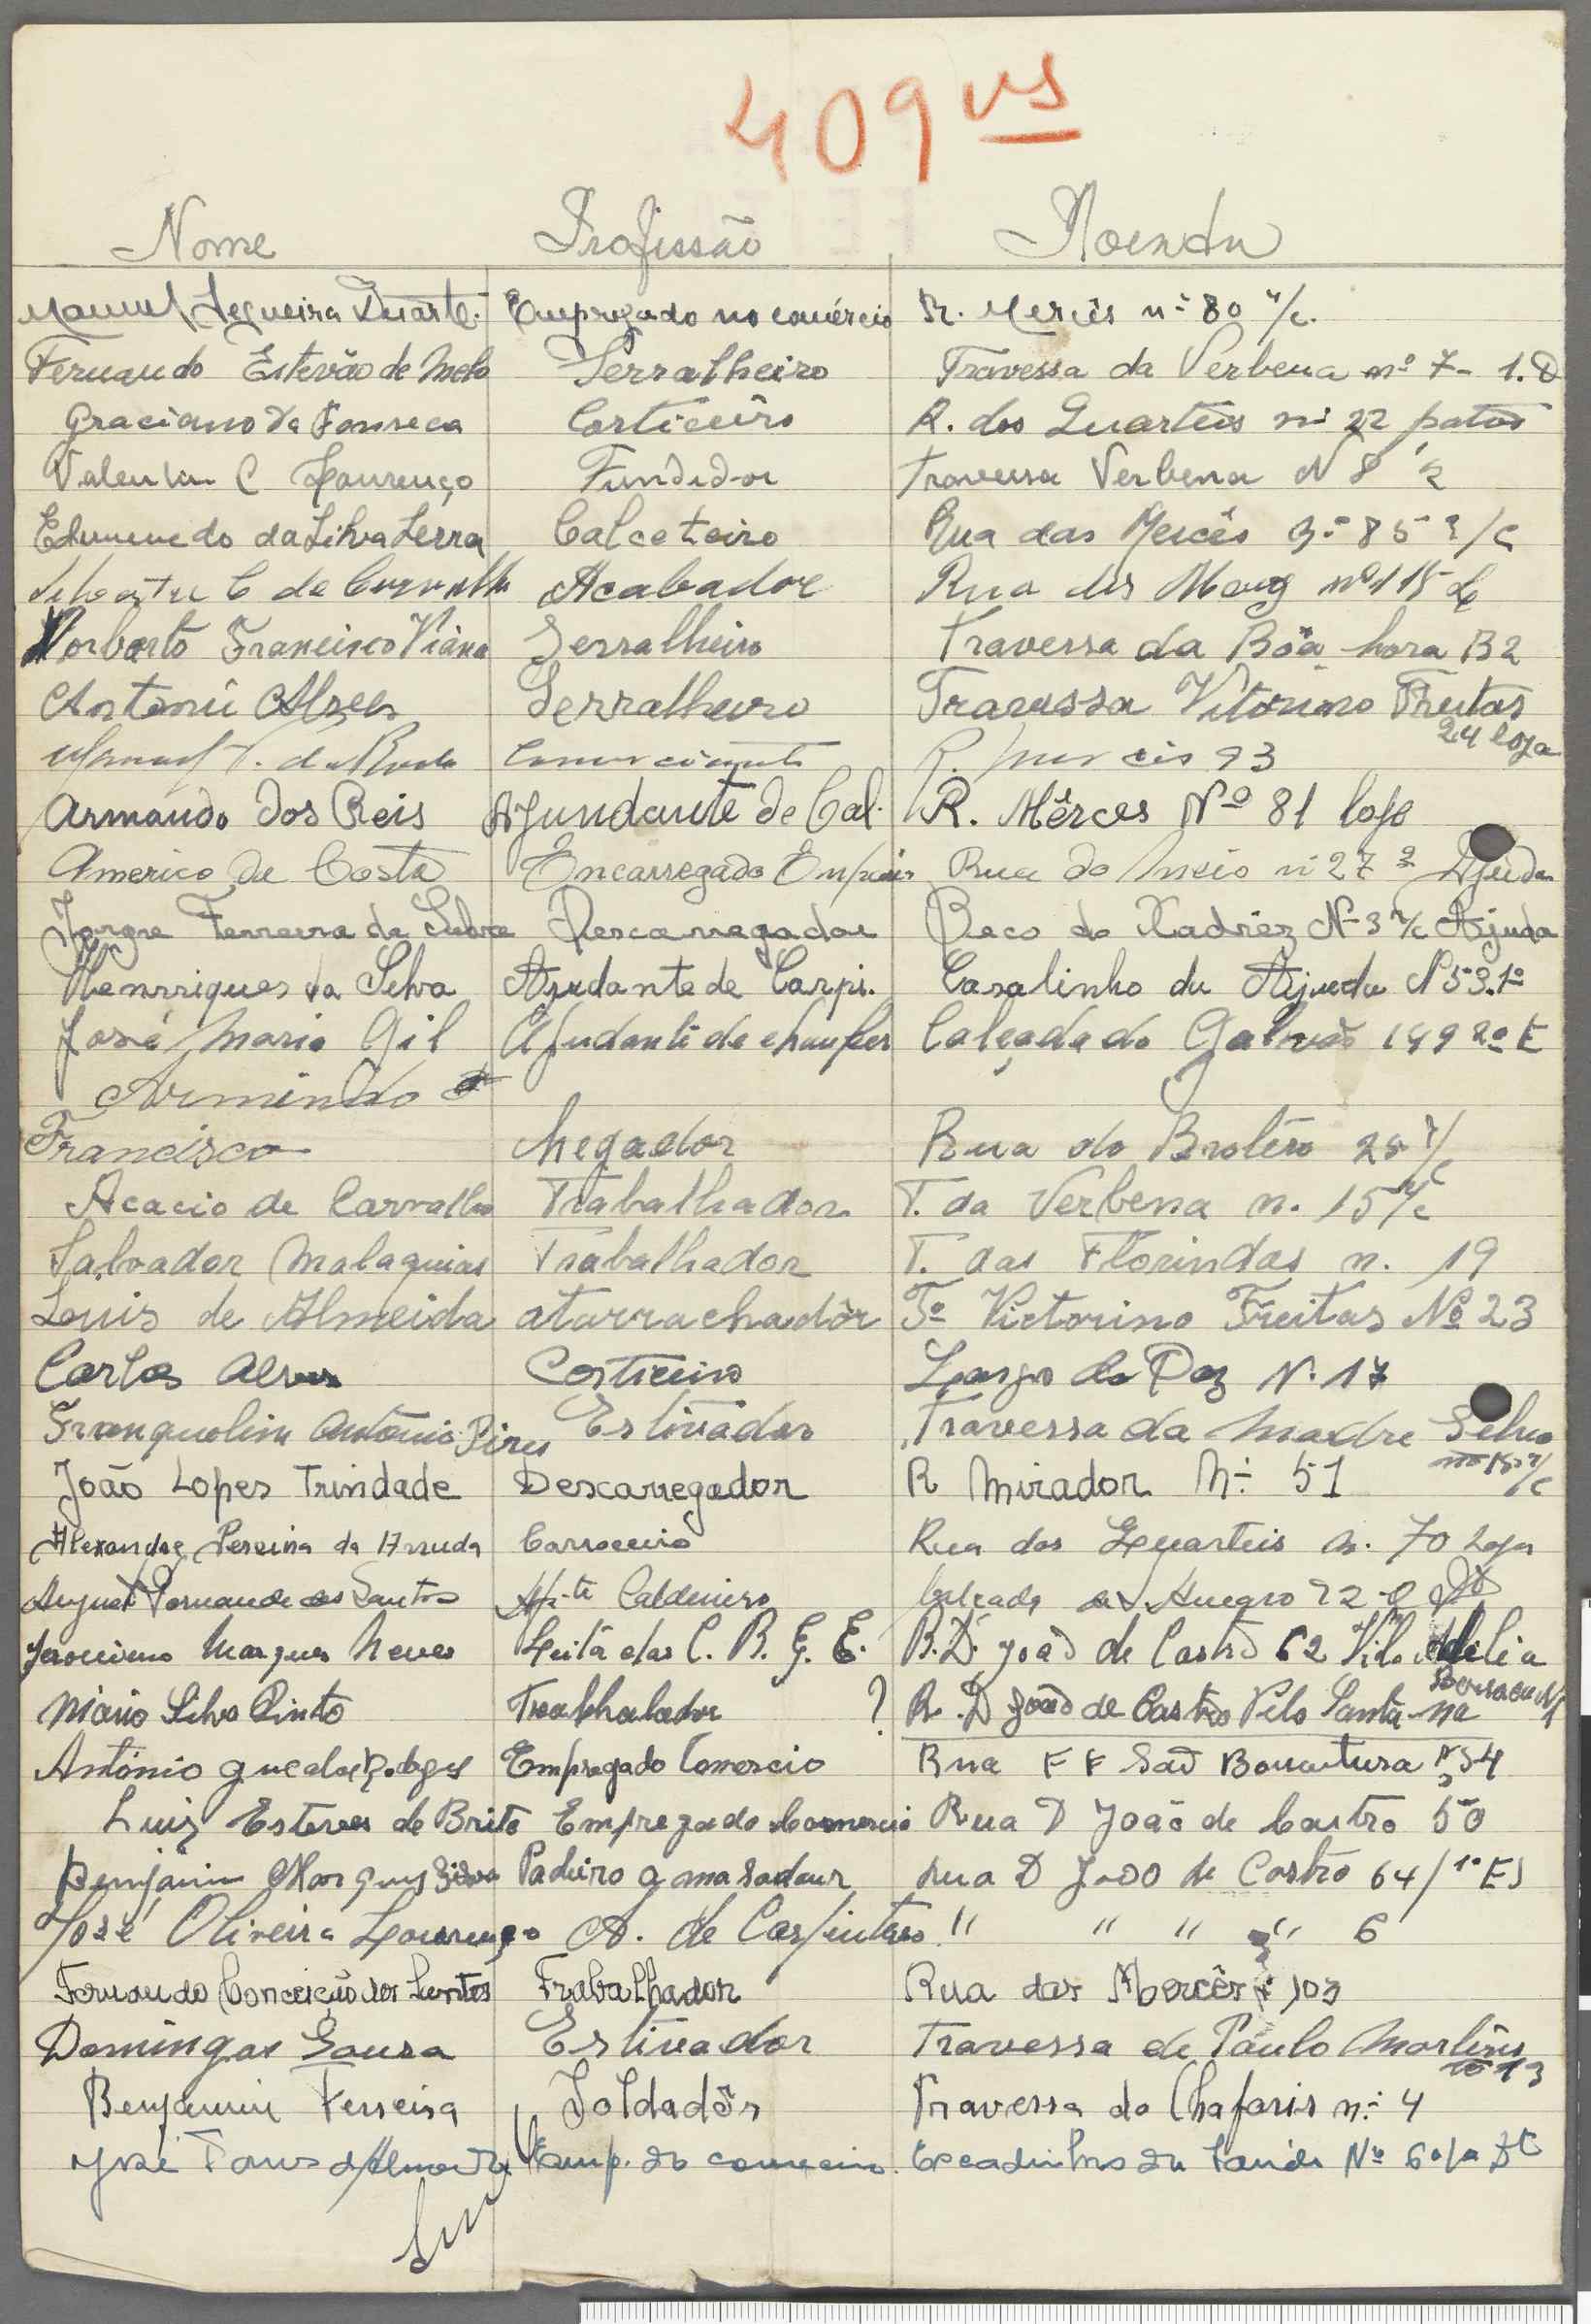 409 vs
Nome Profissão Morada
Manuel Segueira Duarte. Empregado no comércio R. Mercês nº 80 r/c.
Fernando Estevão de Melo Serralheiro Travessa da Verbena nº 7- 1. D
Graciano da Fonseca Corticeiro R. dos Quarteis nº 22 patas
Valentin C Lourenço Fundidor Travessa Verbena N 8
da Silva Serra Calceteiro Rua das Mercês 85 r/c
C de Carvalho Acabador Rua nº 115
Norberto Francisco Viana Serralheiro Travessa da Bôa hora B2
Antoniu Alves Serralheiro Travessa Vitorino Freitas
24 loja
R. 93
Armando Dos Reis Ajundante de Cal. R. Mêrces Nº 81 loja
Americo da Costa Encarregado Rua do Meio nº 27 Ajuda
Jorge Ferreira da Silva Descarregador Beco do Xadrêz Nº 3 r/c Ajuda
Henrriques da Silva Ajudante de Carpi. Casalinho da Ajuda Nº 59.1º
José Maria Gil Ajudante de chaufer Calçada do Galvão 149 2º E
Arminho
Francisco hegador Rua do Brotero 28 r/c
Acacio de Carvalho Trabalhador T. da Verbena n. 15 r/c
Salvador Malaquias Trabalhador T. das Florindas n. 19
Luis de Almeida atarrachadôr Tª Victorino Freitas Nº 23
Carlos Alves Corticeiro Largo da Paz N. 17
Franquelim António Pires Estivador Travessa da Madre Silva
r/c
João Lopes Trindade Descarregador R Mirador Nº 51
Alexandre Pereira da Arruda Carroceiro Rua dos Quarteis n. 70 Loja
August Fernande dos Santos Caldeireiro Calçada 22
Marques Neves das C. R. G. E. R. D. João de Castro 62 Vila Adelia
Mário Silva Pinto Trabhalador ? R. D João de Castro Vila Santa-na
António Empregado Comercio Rua F F São Bonentura 54
Luiz Esteves de Brito Empregado Comercio Rua D João de Castro 50
Benjamin Marques Silva Padeiro amasadour Rua D João de Castro 64/1º ES
José Oliveira Lourenço A. de Carpinteiro " " " " 6
Fernando Conceição dos Santos Trabalhador Rua das Mercês 103
Domingos Sousa Estivador Travessa de Paulo Martins
13
Benjamin Ferreira Soldadôr Travessa do Chafaris nº 4
José d'Almeida Emp. do comercio. Escadinhas da Saúde Nº 6